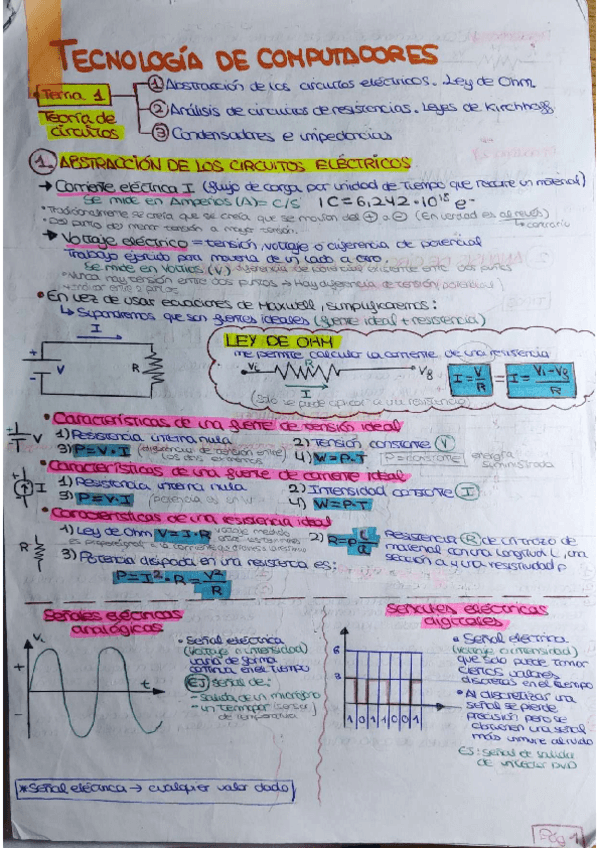 TECNOLOGÍA DE COMPUTADORES
Tema 1
Teoría de circuitos
① Abstracción de los circuitos eléctricos. Ley de Ohm.
② Análisis de circuitos de resistencias. Leyes de Kirchhoff
③ Condensadores e impedancias
1. ABSTRACCIÓN DE LOS CIRCUITOS ELÉCTRICOS
→ Corriente eléctrica I (flujo de carga por unidad de tiempo que recorre un material)
Se mide en Amperios (A) = C/s 1C = 6,242 · 10¹⁸ e⁻
• Tradicionalmente se creía que se creía que se movían del + a - (En verdad es al revés)
↳ contrario
• Del punto del menor tensión a mayor tensión.
→ Voltaje eléctrico = tensión, voltaje o diferencia de potencial
Trabajo ejercido para moverla de un lado a otro.
Se mide en Voltios (V) diferencia de potencial existente entre dos puntos
• Nunca hay tensión entre dos puntos → Hay diferencia de tensión potencial
entre 2 puntos
• En vez de usar ecuaciones de Maxwell, simplificaremos:
↳ Supondremos que son fuentes ideales (fuente ideal + resistencia)
I
+
V
-
R
LEY DE OHM
me permite calcular la corriente de una resistencia
Vi R Vg
I
(Sólo se puede aplicar a una resistencia)
I = V/R = I = Vi - Vg / R
• Características de una fuente de tensión ideal
+ V
1) Resistencia interna nula
2) Tensión constante V
3) P = V · I (diferencia de tensión entre los dos extremos)
4) W = P · T P = constante energía suministrada
• Características de una fuente de corriente ideal
I
1) Resistencia interna nula
2) Intensidad constante I
3) P = V · I (potencia es en W)
4) W = P · T
• Características de una resistencia ideal
R
1) Ley de Ohm V = I · R voltaje medido
es proporcional a la corriente que atraviesa la resistencia
2) R = ρ L/a Resistencia R de un trozo de material con una longitud L, una sección a y una resistividad ρ
3) Potencia disipada en una resistencia es:
P = I² · R = V²/R
Señales eléctricas analógicas
Vi
+
-
t
• Señal eléctrica (voltaje o intensidad) varía de forma continua en el tiempo
EJ señal de:
- salida de un micrófono
- un termopar (sensor de temperatura)
Señales eléctricas digitales
1 0 1 1 0 0 1
• Señal eléctrica (voltaje o intensidad) que sólo puede tomar ciertos valores discretos en el tiempo
• Al discretizar una señal se pierde precisión pero se obtienen una señal más inmune al ruido
EJ: señal de salida de un lector DVD
* Señal eléctrica → cualquier valor dado
Pág 1